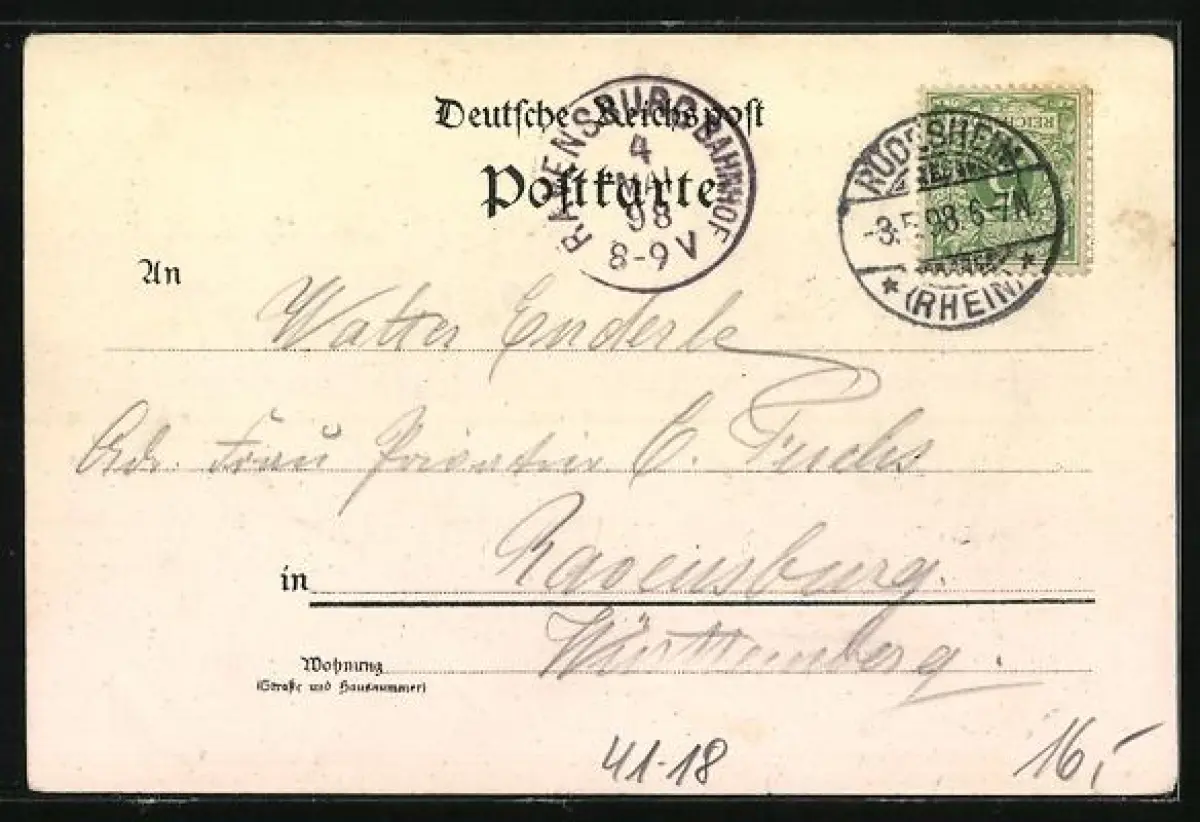 Deutsche Reichspost
Postkarte
RAVENSBURG BAHNHOF
4
MAI
98
8-9 V
REICHSPOST
5
RÜDESHEIM
-3.5.98.6-7N.
* (RHEIN) *
An
Walter Enderle
Adr. Frau Privatier C. Fuchs
in Ravensburg.
Württemberg.
Wohnung
(Straße und Hausnummer)
41-18
16,-